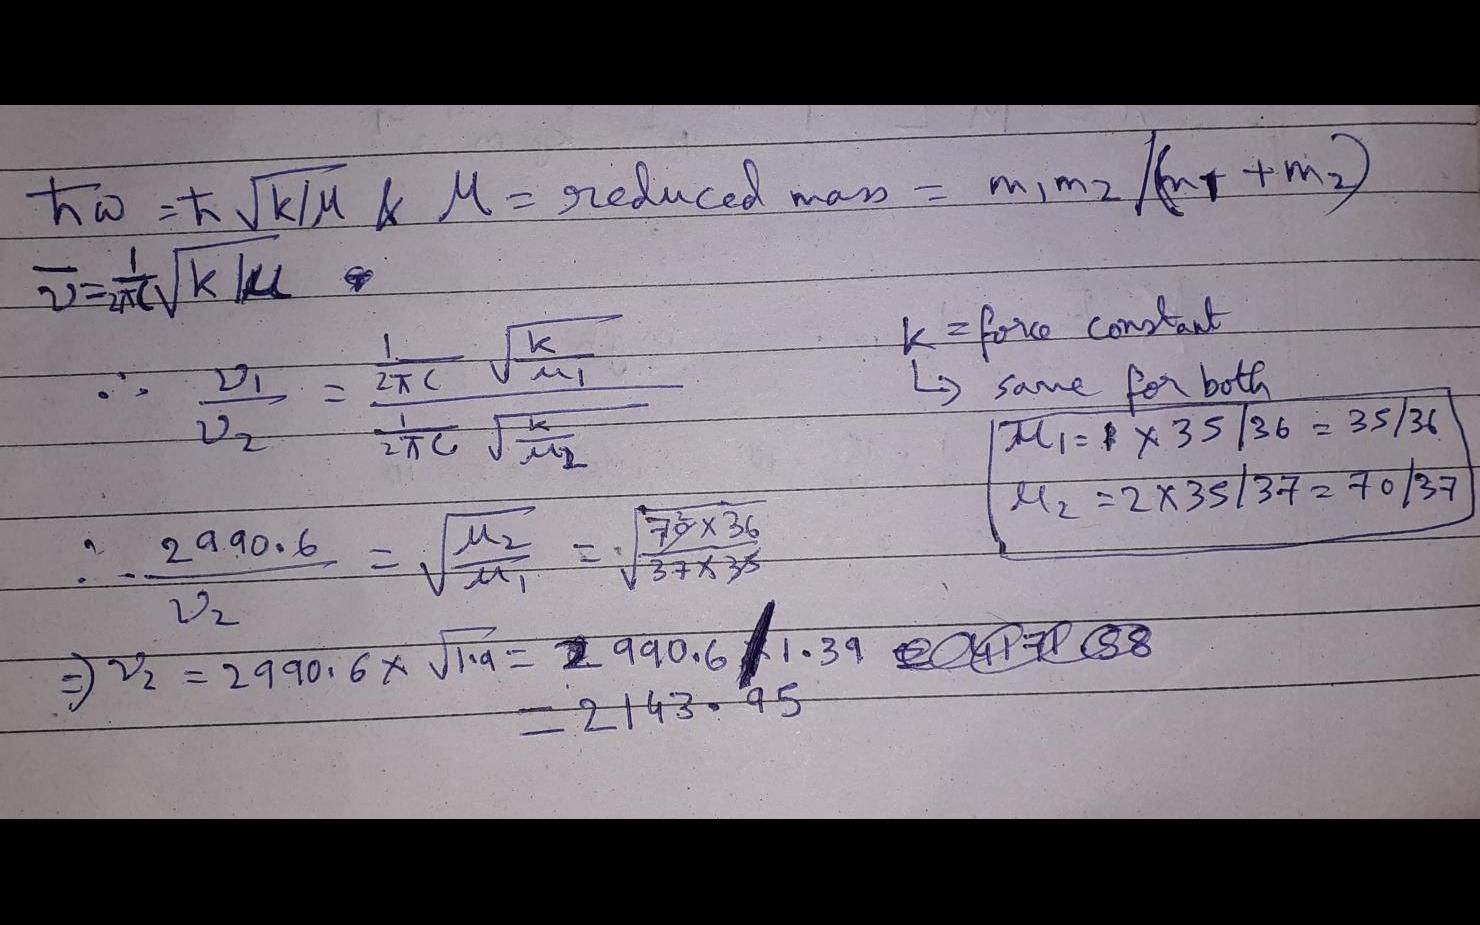 ħω = ħ √k/μ & μ = reduced mass = m₁m₂/(m₁ + m₂)
ν̄ = 1/2πc √k/μ
∴ ν₁/ν₂ = (1/2πc √k/μ₁)/(1/2πc √k/μ₂)
k = force constant
↳ same for both
μ₁ = 1 × 35/36 = 35/36
μ₂ = 2×35/37 = 70/37
∴ 2990.6/ν₂ = √μ₂/μ₁ = √70×36/37×35
⇒ ν₂ = 2990.6 × √1.9 = 2990.6/1.39
= 2143.95